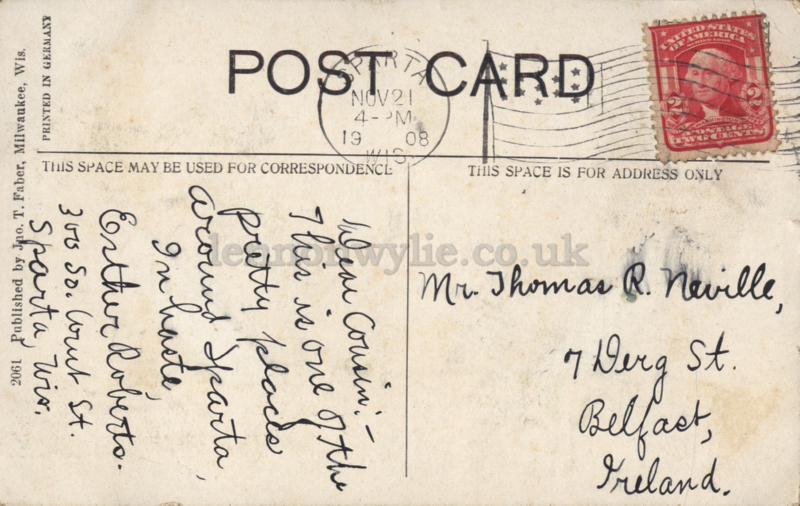 POST CARD
SPARTA
NOV 21
4-PM
1908
WIS.
THIS SPACE MAY BE USED FOR CORRESPONDENCE
THIS SPACE IS FOR ADDRESS ONLY
UNITED STATES
OF AMERICA
2 2
POSTAGE
TWO CENTS
PRINTED IN GERMANY
2061 Published by Jno. T. Faber, Milwaukee, Wis.
Dear Cousin:—
This is one of the
pretty places
around Sparta,
In haste,
Esther Roberts.
300 So. Court St.
Sparta, Wis.
Mr. Thomas R. Neville,
7 Derg St.
Belfast,
Ireland.
lennonwylie.co.uk